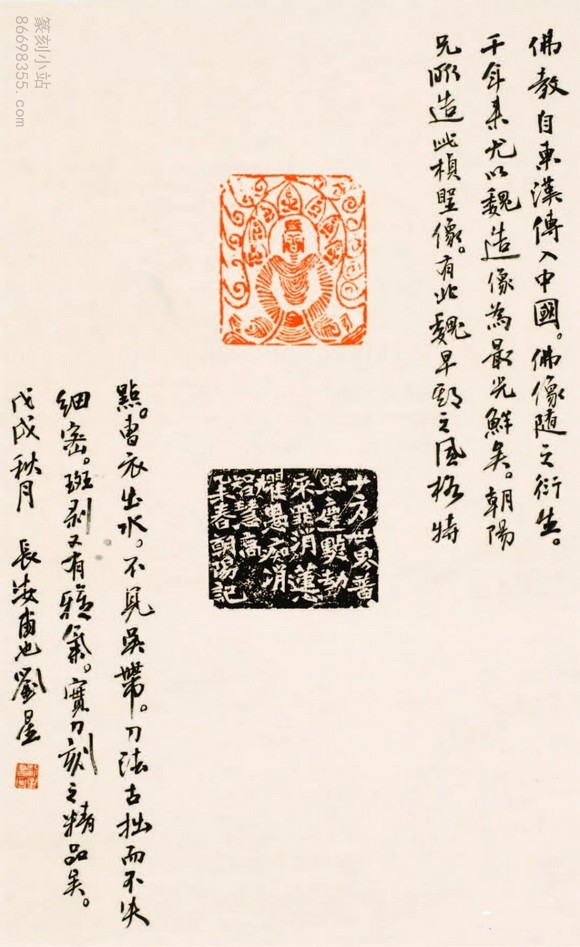 佛教自東漢傳入中國。佛像隨之衍生。
千年来尤以魏造像為最光鮮矣。朝陽
兄所造此楨聖像。有北魏早期之風格特
點。曹衣出水。不見吳帶。刀法古拙而不失
細密。斑剥又有雅氣。實乃刻之精品矣。
戊戌秋月 長安甫也劉星
十方世界普
照塵點劫
朝陽記
篆刻小站
86698355.com